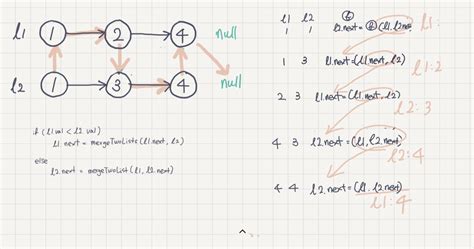 l1 1 2 4 null
l2 1 3 4 null
if (l1.val < l2.val)
l1.next = mergeTwoLists (l1.next, l2)
else
l2.next = mergeTwoList (l1, l2.next)
l1 l2
1 1 l2.next = (l1, l2.next)
l1:
1 3 l1.next = (l1.next, l2)
l1:2
2 3 l1.next = (l1.next, l2)
l2:3
4 3 l2.next = (l1, l2.next)
l2:4
4 4 l2.next = (l1. l2.next)
l1:4